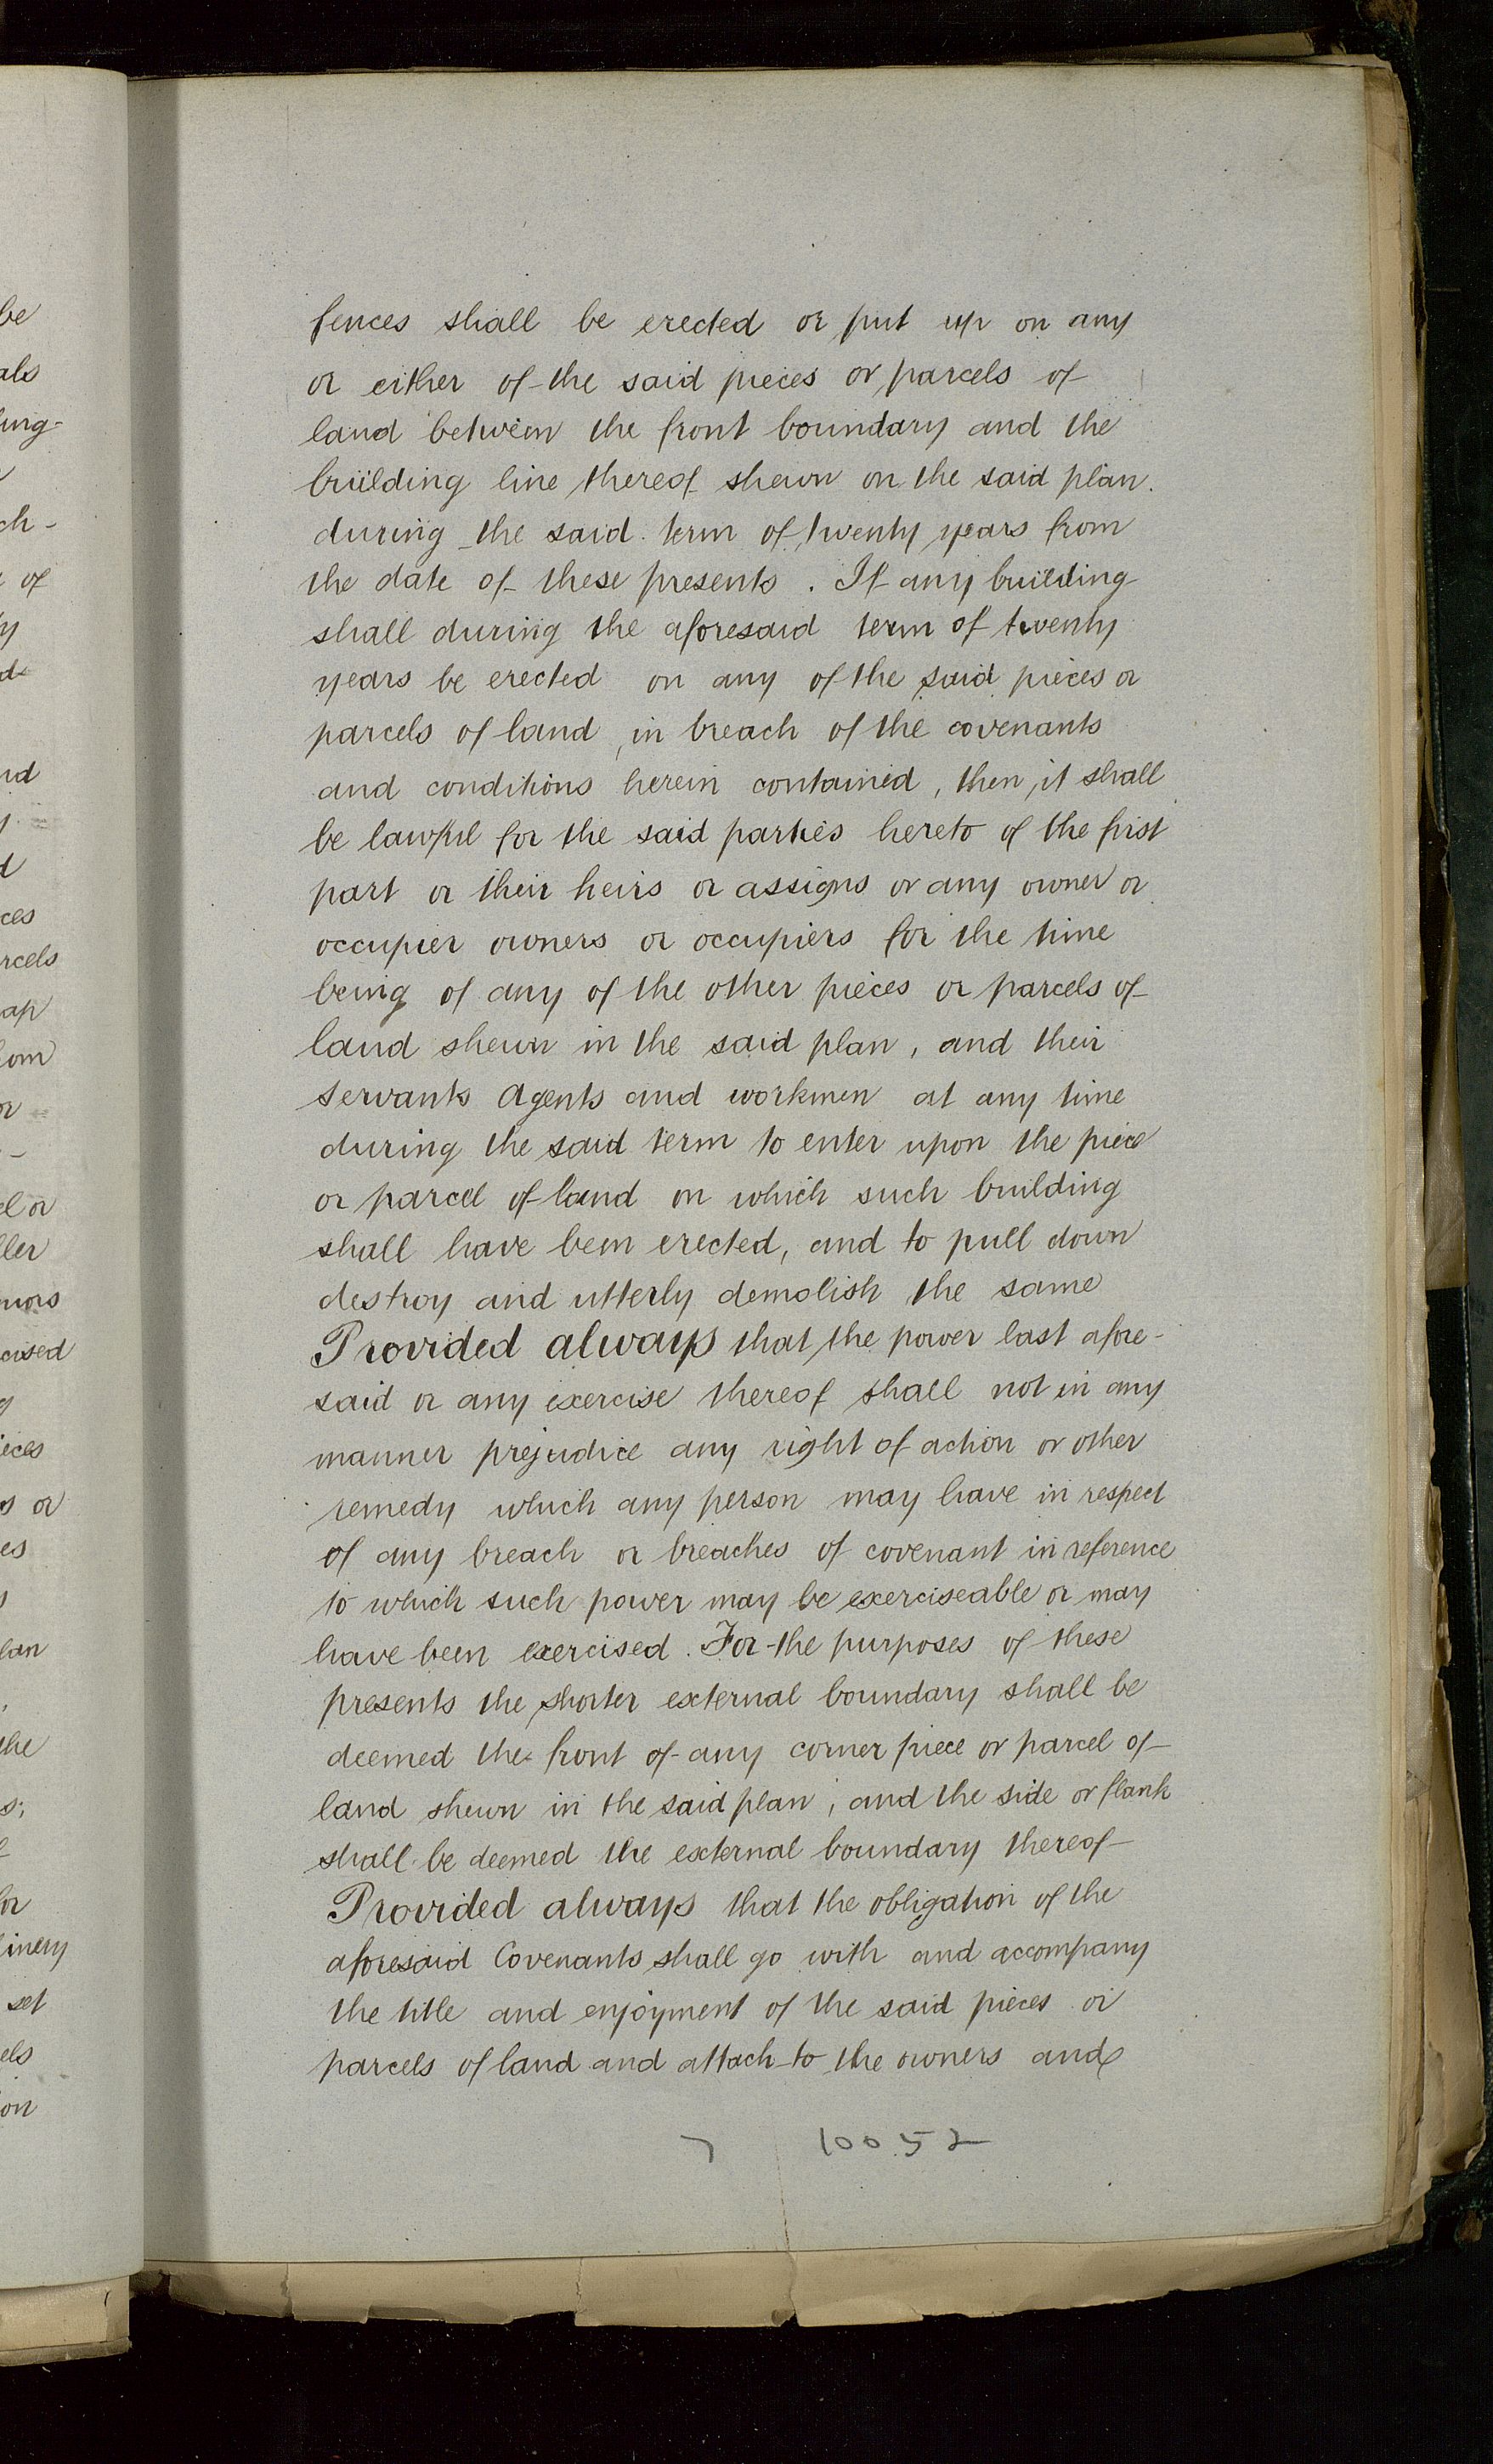 fences shall be erected or put up on any
or either of the said pieces or parcels of
land between the front boundary and the
building line thereof shewn on the said plan.
during the said term of twenty years from
the date of these presents. If any building
shall during the aforesaid term of twenty
years be erected on any of the said pieces or
parcels of land, in breach of the covenants
and conditions herein contained, then, it shall
be lawful for the said parties hereto of the first
part or their heirs or assigns or any owner or
occupier owners or occupiers for the time
being of any of the other pieces or parcels of
land shewn in the said plan, and their
servants Agents and workmen at any time
during the said term to enter upon the piece
or parcel of land on which such building
shall have been erected, and to pull down
destroy and utterly demolish the same
Provided always that the power last afore-
said or any exercise thereof shall not in any
manner prejudice any right of action or other
remedy which any person may have in respect
of any breach or breaches of covenant in reference
to which such power may be exerciseable or may
have been exercised. For the purposes of these
presents the shorter external boundary shall be
deemed the front of any corner piece or parcel of
land shewn in the said plan, and the side or flank
shall be deemed the external boundary thereof
Provided always that the obligation of the
aforesaid Covenants shall go with and accompany
the title and enjoyment of the said pieces or
parcels of land and attach to the owners and
7 10052